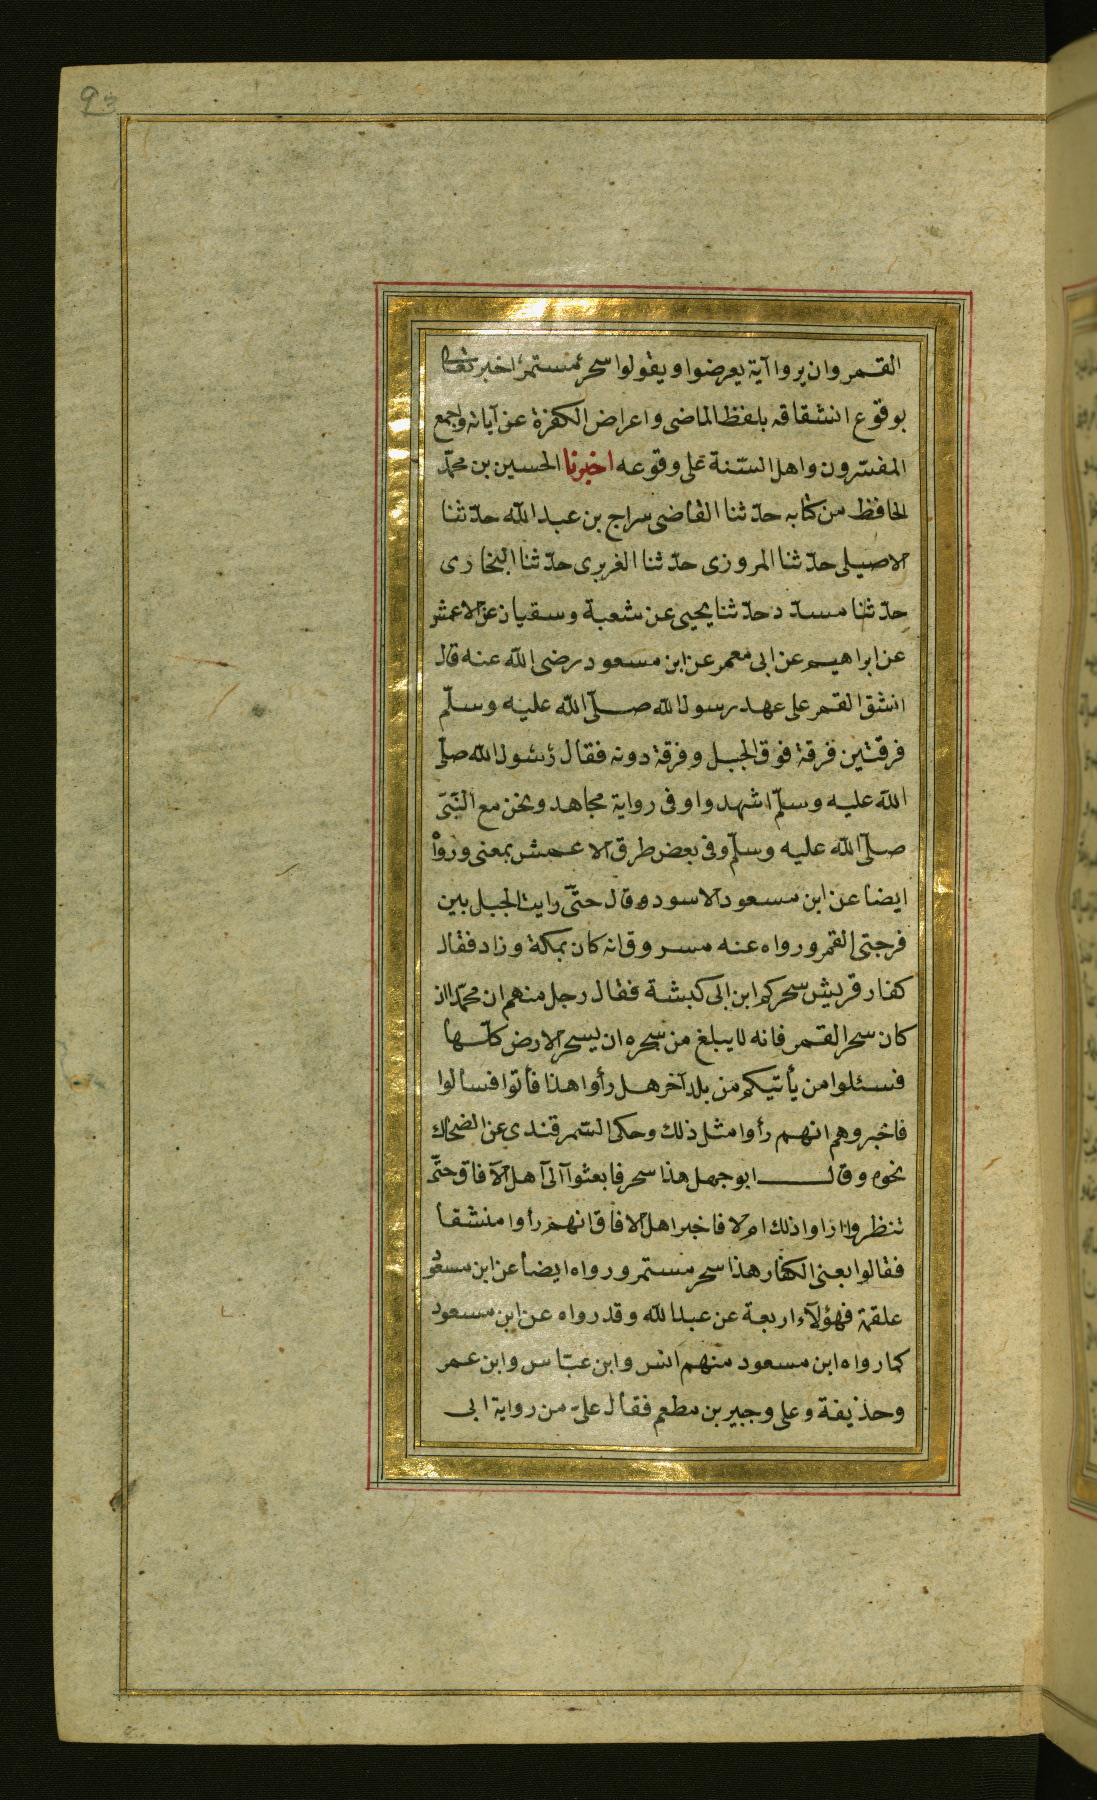 93
القمر وان يروا آية يعرضوا ويقولوا سحر مستمر اخبر تعالى
بوقوع انشقاقه بلفظ الماضى واعراض الكفرة عن آياته واجمع
المفسّرون واهل السّنة على وقوعه اخبرنا الحسين بن محمّد
الحافظ من كتابه حدّثنا القاضى سراج بن عبد الله حدّثنا
الاصيلى حدّثنا المروزى حدّثنا الغربرى حدّثنا البخارى
حدّثنا مسدّد حدّثنا يحيى عن شعبة وسفيان عن الاعمش
عن ابراهيم عن ابى معمر عن ابن مسعود رضى الله عنه قال
انشق القمر على عهد رسول الله صلّى الله عليه وسلّم
فرقتين فرقة فوق الجبل وفرقة دونه فقال رسول الله صلّى
الله عليه وسلّم اشهدوا وفى رواية مجاهد ونحن مع النّبىّ
صلّى الله عليه وسلّم وفى بعض طرق الاعمش بمعنى ورواه
ايضا عن ابن مسعود الاسود وقال حتّى رايت الجبل بين
فرجتى القمر ورواه عنه مسروق انه كان بمكة وزاد فقال
كفار قريش سحركم ابن ابى كبشة فقال رجل منهم ان محمّدا ان
كان سحر القمر فانه لا يبلغ من سحره ان يسحر الارض كلّها
فسئلوا من يأتيكم من بلد آخر هل رأوا هذا فأتوا فسألوا
فاخبروهم انهم رأوا مثل ذلك وحكى السّمرقندى عن الضحاك
نحوه وقال ابو جهل هذا سحر فابعثوا آلى آهل الآفاق حتّى
تنظروا اراوا ذلك ام لا فاخبر اهل الافاق انهم رأوا منشقا
فقالوا يعنى الكفار هذا سحر مستمر ورواه ايضا عن ابن مسعود
علقمة فهؤلآء اربعة عن عبد الله وقد رواه عن ابن مسعود
كما رواه ابن مسعود منهم انس وابن عبّاس وابن عمر
وحذيفة وعلى وجبير بن مطعم فقال علىّ من رواية ابى